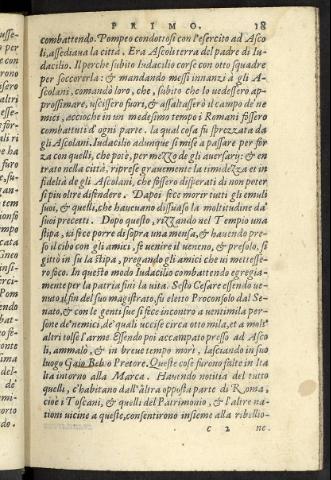 PRIMO. 18
combattendo. Pompeo condottosi con l'esercito ad Asco
li, assediaua la città. Era Ascoli terra del padre di Iu-
dacilio. Il perche subito Iudacilio corse con otto squadre
per soccorerla: & mandando messi innanzi à gli A-
scolani, comandò loro, che, subito che lo uedessero ap-
prossimare, uscissero fuori, & assaltassero il campo de ne
mici, accioche in un medesimo tempo i Romani fossero
combattuti d'ogni parte. la qual cosa fu sprezzata da
gli Ascolani. Iudacilio adunque si mise a passare per for
za con quelli, che potè, per mezzo de gli auersary: & en
trato nella città, riprese grauemente la timidezza et in
fidelta de gli Ascolani, che fossero disperati di non poter
si piu oltre difendere. Dapoi fece morir tutti gli emuli
suoi, & quelli, che haueuano dissuaso la moltitudine da'
suoi precetti. Dopo questo, rizzando nel Tempio una
stipa, ui fece porre di sopra una mensa, & hauendo pre-
so il cibo con gli amici, fe uenire il ueneno, & presolo, si
gittò in su la stipa, pregando gli amici che ui mettesse-
ro fuoco. In questo modo Iudacilio combattendo egregia-
mente per la patria finì la uita. Sesto Cesare essendo ue-
nuto il fin del suo magistrato, fu eletto Proconsolo dal Se-
nato, & con le genti sue si fece incontro a uentimila per-
sone de'nemici, de' quali uccise circa otto mila, et a molt'
altri tolse l'arme. Essendo poi accampato presso ad Asco
li, ammalò, & in breue tempo morì, lasciando in suo
luogo Gaio Bebio Pretore. Queste cose furono fatte in Ita
lia intorno alla Marca. Hauendo notitia del tutto
quelli, c'habitano dall'altra opposita parte di Roma,
cioè i Toscani, & quelli del Patrimonio, & l'altre na-
tioni uicine a queste, consentirono insieme alla ribellio-
C 2 ne.